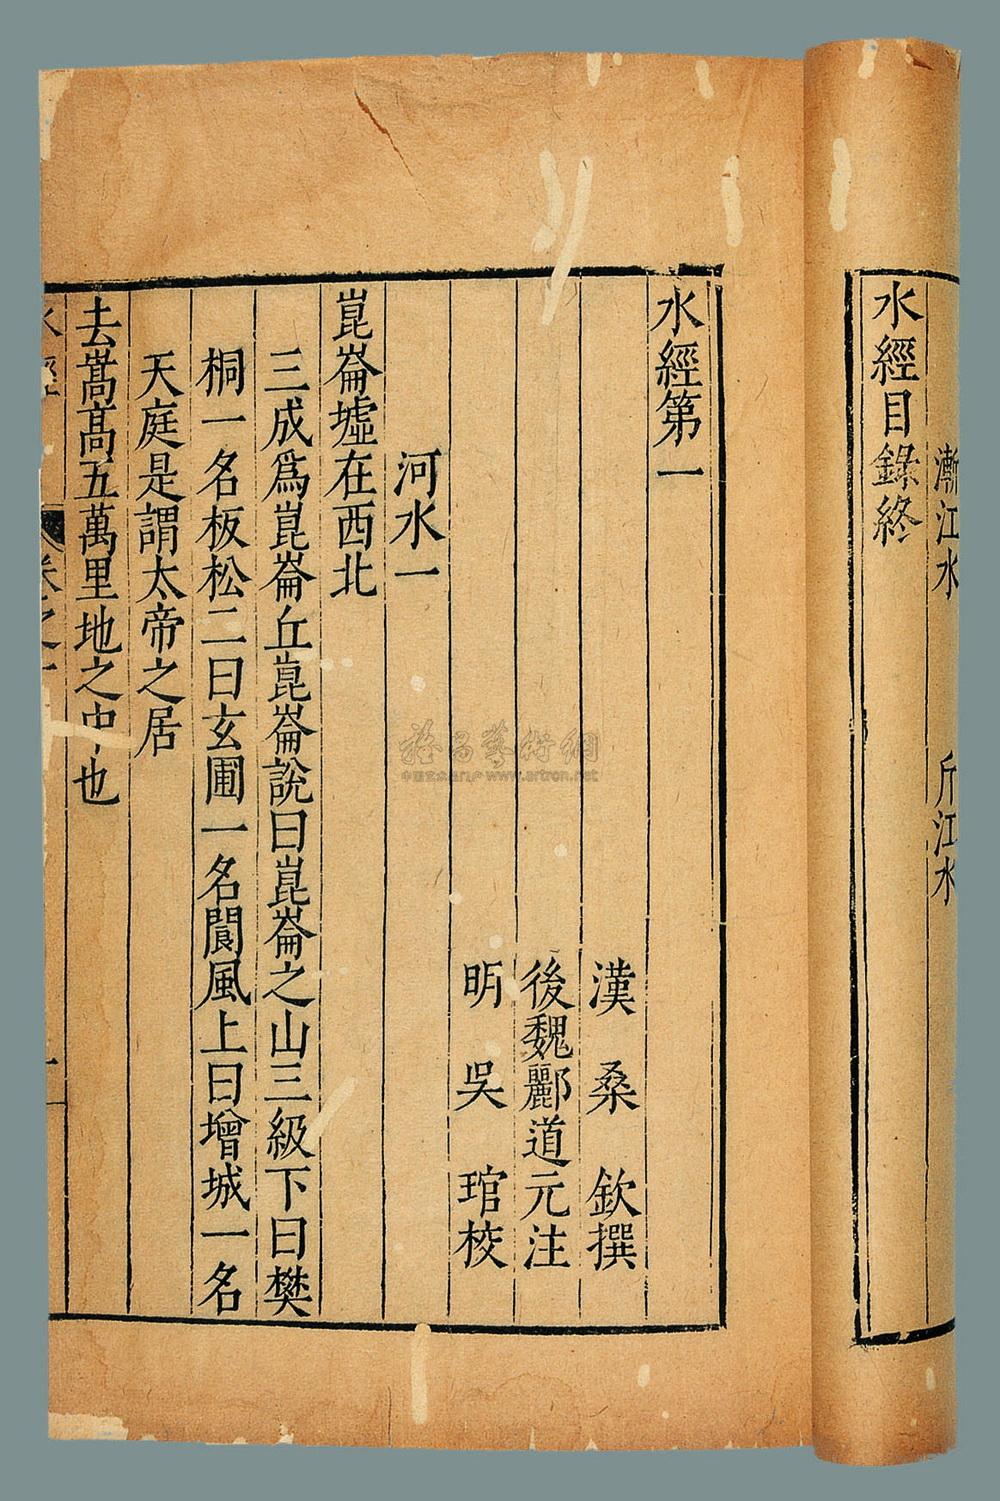 漸江水　斤江水
水經目錄終
水經第一
漢　桑　欽撰
後魏酈道元注
明　吳　琯校
河水一
崑崙墟在西北
三成爲崑崙丘崑崙說曰崑崙之山三級下曰樊
桐一名板松二曰玄圃一名閬風上曰增城一名
天庭是謂太帝之居
去嵩高五萬里地之中也
水經　卷之一　一
www.artron.net